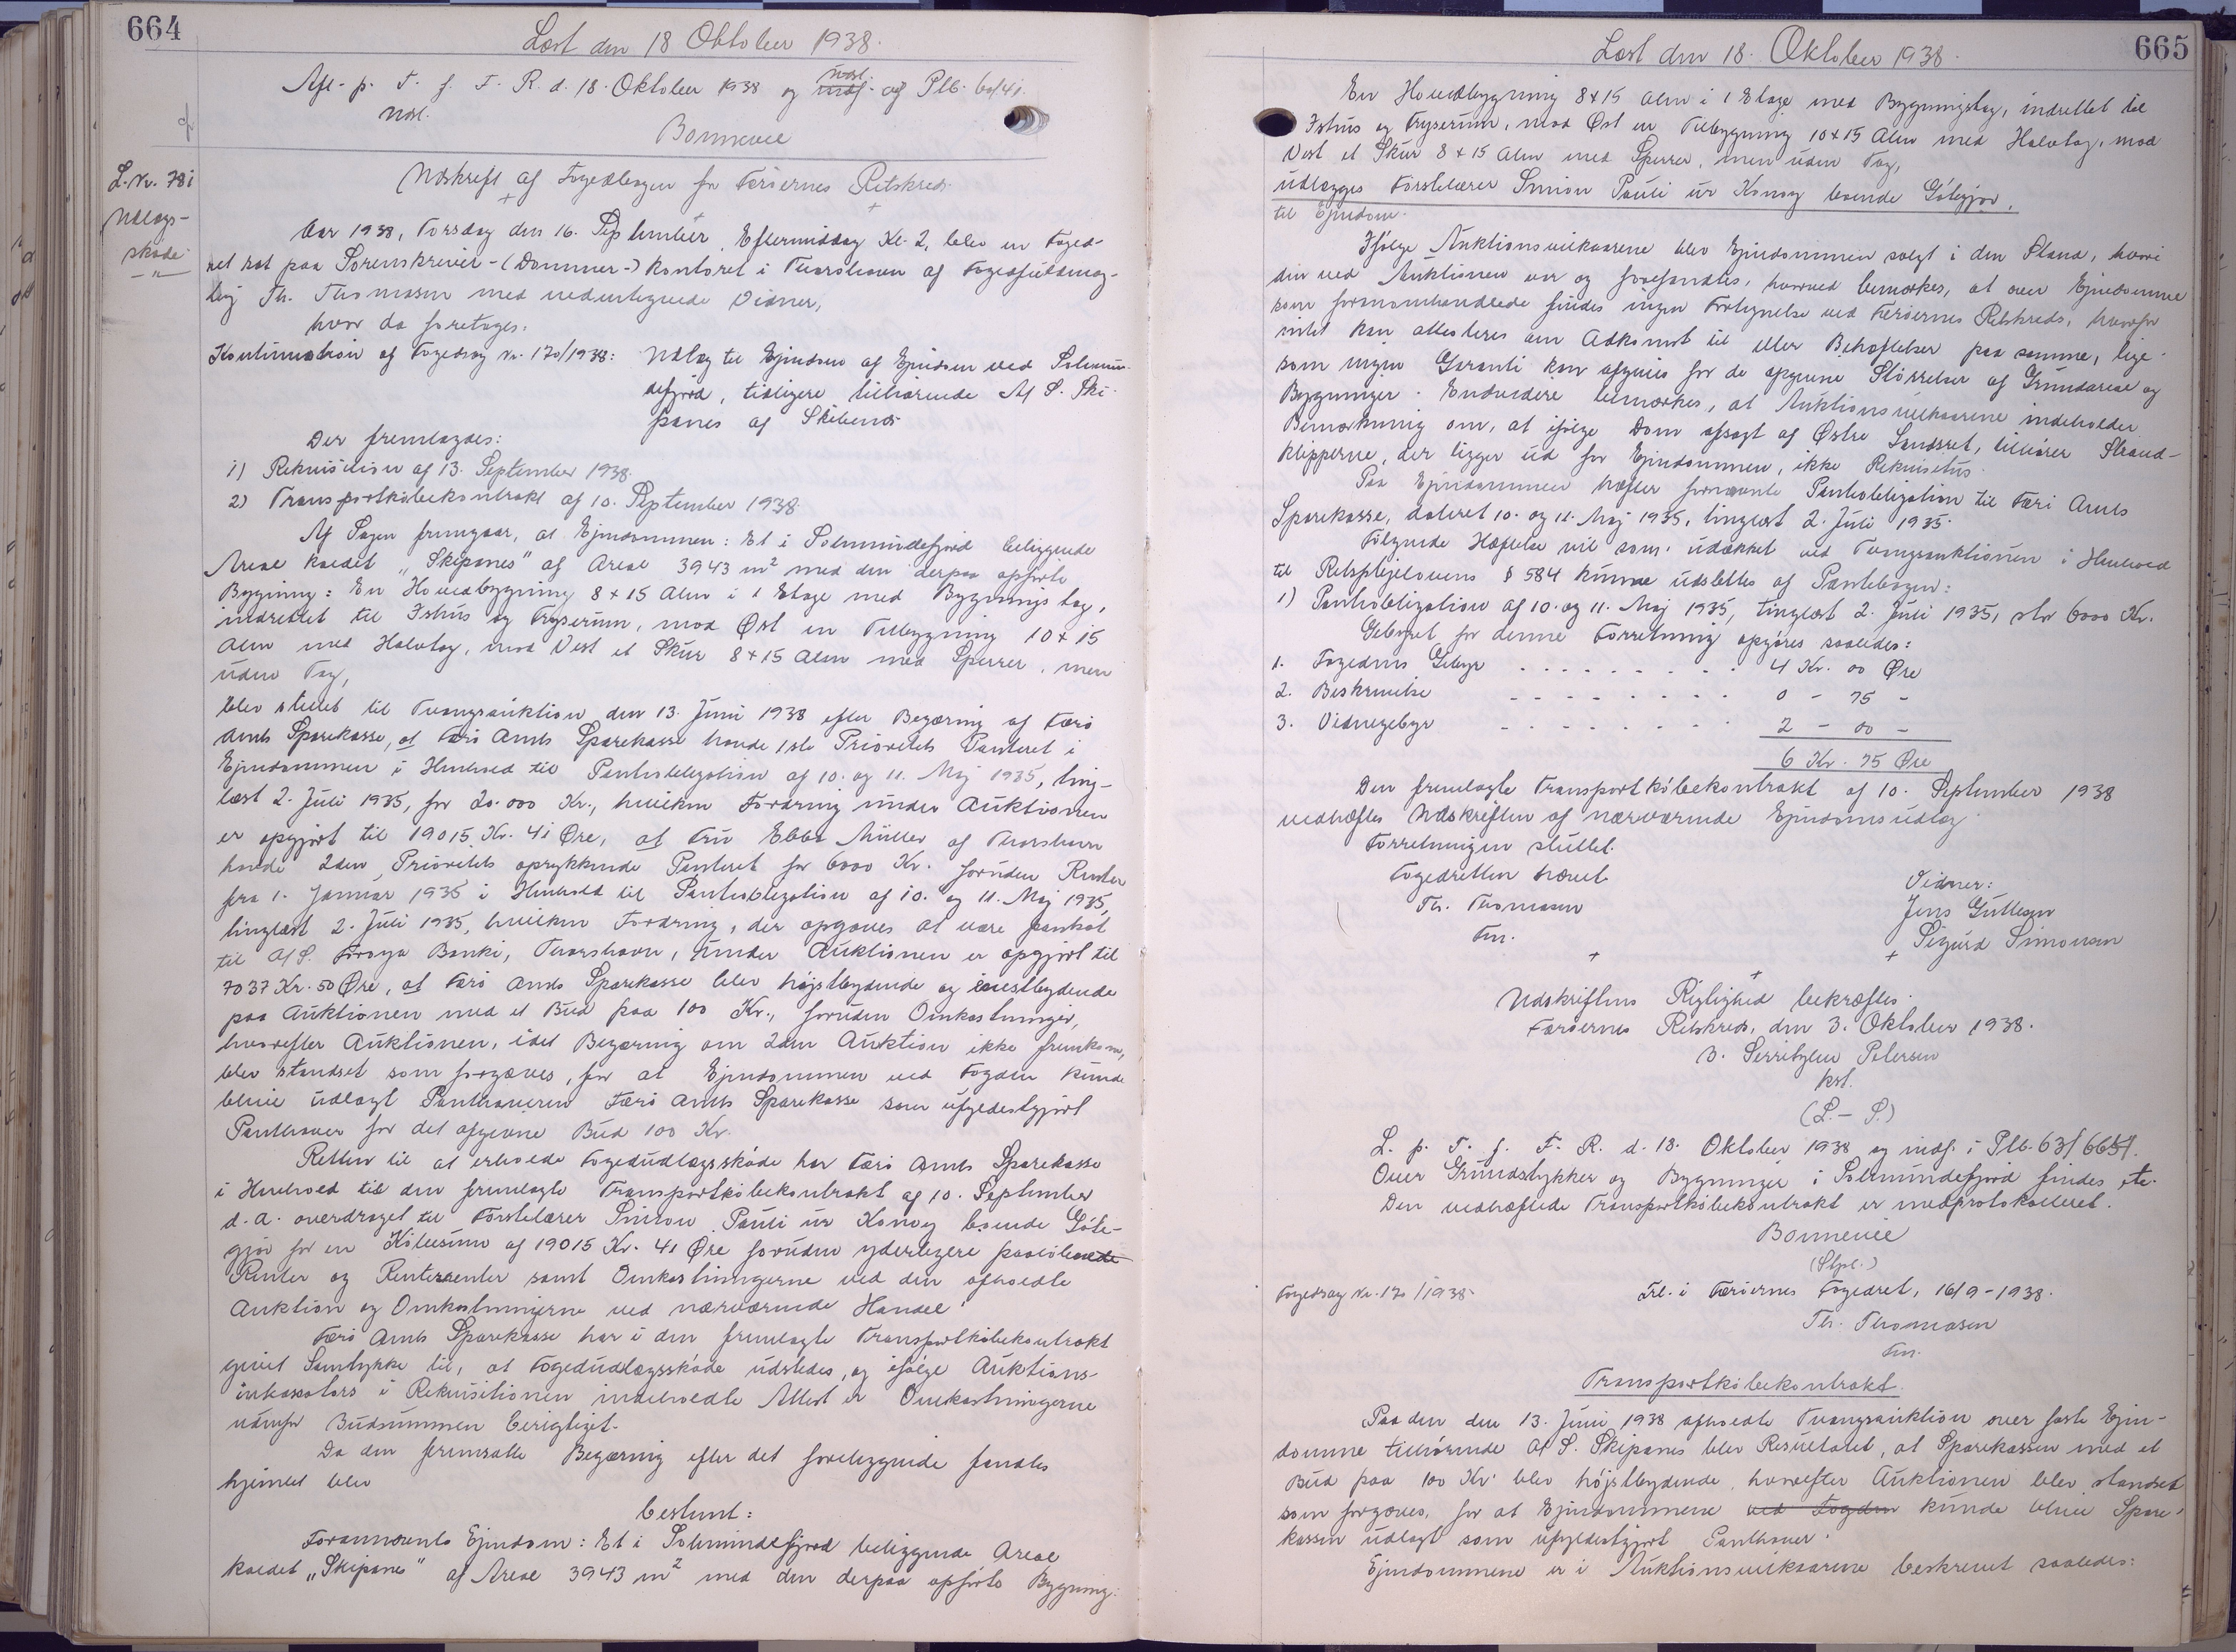 664
Læst den 18 Oktober 1938.
Afl. p. T. f. F. R. d. 18. Oktober 1938 og udsl. af Plb. 60/41.
udsl.
Bonnevie
L. Nr. 781
Udlægs-
skøde
Udskrift af Fogedbogen for Færøernes Retskreds.
Aar 1938, Torsdag den 16. September, Eftermiddag Kl. 2, blev en Foged-
ret sat paa Sorenskriver- (Dommer-) kontoret i Thorshavn af Fogedfuldmæg-
tig Th. Thomasen med undertegnede Vidner,
hvor da foretoges:
Kontinuation af Fogedsag Nr. 120/1938: Udlæg til Ejendom af Ejendom ved Solmun-
defjord, tidligere tilhørende A/S. Ski-
panes af Skibenæs
Der fremlagdes:
1) Rekvisition af 13. September 1938.
2) Transportkøbekontrakt af 10. September 1938.
Af Sagen fremgaar, at Ejendommen: Et i Solmundefjord beliggende
Areal kaldet "Skipanes" af Areal 3943 m² med den derpaa opførte
Bygning: En Hovedbygning 8 x 15 Alen i 1 Etage med Bygningstag,
indrettet til Ishus og Fryserum, mod Øst en Tilbygning 10 x 15
Alen med Halvtag, mod Vest et Skur 8 x 15 Alen med Sperrer, men
uden Tag,
blev stillet til Tvangsauktion den 13. Juni 1938 efter Begæring af Færø
Amts Sparekasse, at Færø Amts Sparekasse havde 1ste Prioritets Panteret i
Ejendommen i Henhold til Pantobligation af 10. og 11. Maj 1935, ting-
læst 2. Juli 1935, for 20.000 Kr., hvilken Fordring under Auktionen
er opgjort til 19015 Kr. 41 Øre, at Fru Ebba Müller af Thorshavn
havde 2den Prioritets oprykkende Panteret for 6000 Kr. foruden Renter
fra 1. Januar 1936 i Henhold til Pantobligation af 10. og 11. Maj 1935,
tinglæst 2. Juli 1935, hvilken Fordring, der opgaves at være pantsat
til A/S. Føroya Banki, Thorshavn, under Auktionen er opgjort til
7037 Kr. 50 Øre, at Færø Amts Sparekasse blev højstbydende og enestbydende
paa Auktionen med et Bud paa 100 Kr., foruden Omkostninger,
hvorefter Auktionen, idet Begæring om 2den Auktion ikke fremkom,
blev standset som forgæves, for at Ejendommen ved Fogden kunde
blive udlagt Panthaveren Færø Amts Sparekasse som ufyldestgjort
Panthaver for det afgivne Bud 100 Kr.
Retten til at erholde Fogedudlægsskøde har Færø Amts Sparekasse
i Henhold til den fremlagte Transportkøbekontrakt af 10. September
d. A. overdraget til Førstelærer Simion Pauli úr Konoy boende Góte-
gjov for en Købesum af 19015 Kr. 41 Øre foruden yderligere paaløbende
Renter og Rentersrenter samt Omkostningerne ved den afholdte
Auktion og Omkostningerne ved nærværende Handel.
Færø Amts Sparekasse har i den fremlagte Transportkøbekontrakt
givet Samtykke til, at Fogedudlægsskøde udstedes, og ifølge Auktions-
inkassators i Rekvisitionen indeholdte Attest er Omkostningerne
udenfor Budsummen berigtiget.
Da den fremsatte Begæring efter det foreliggende fandtes
hjemlet blev
bestemt:
Forannævnte Ejendom: Et i Solmundefjord beliggende Areal
kaldet "Skipanes" af Areal 3943 m² med den derpaa opførte Bygning:
665
Læst den 18. Oktober 1938.
En Hovedbygning 8 x 15 Alen i 1 Etage med Bygningstag, indrettet til
Ishus og Fryserum, mod Øst en Tilbygning 10 x 15 Alen med Halvtag, mod
Vest et Skur 8 x 15 Alen med Sperrer, men uden Tag,
udlægges Førstelærer Simion Pauli úr Konoy boende Gótegjov,
til Ejendom.
Ifølge Auktionsvilkaarene blev Ejendommen solgt i den Stand, hvori
den ved Auktionen var og forefandtes, hvorved bemærkes, at over Ejendomme
som førnævnhandlede findes ingen Fortegnelse ved Færøernes Retskreds, hvorfor
intet kan attesteres om Adkomst til eller Behæftelser paa samme, lige-
som ingen Garanti kan afgives for de opgivne Størrelser af Grundareal og
Bygninger. Endvidere bemærkes, at Auktionsvilkaarene indeholder
Bemærkning om, at ifølge Dom afsagt af Østre Landsret, tilhører Strand-
klipperne, der ligger ud for Ejendommen, ikke Rekvisitus.
Paa Ejendommen hæfter fornævnte Pantobligation til Færø Amts
Sparekasse, dateret 10. og 11. Maj 1935, tinglæst 2. Juli 1935.
Følgende Hæftelse vil som udækket ved Tvangsauktionen i Henhold
til Retsplejelovens § 584 kunne udslettes af Pantebogen:
1) Pantobligation af 10. og 11. Maj 1935, tinglæst 2. Juli 1935, stor 6000 Kr.
Gebyret for denne Forretning opgøres saaledes:
1. Fogedens Gebyr - - - - - - - - - 4 Kr. 00 Øre
2. Beskrivelse - - - - - - - - 0 - 75 -
3. Vidnegebyr - - - - - - - - 2 - 00 -
6 Kr. 75 Øre
Den fremlagte Transportkøbekontrakt af 10. September 1938
vedhæftes Udskriften af nærværende Ejendomsudlæg.
Forretningen sluttet.
Fogedretten hævet
Th. Thomasen
Fm.
Vidner:
Jens Guttesen
Sigurd Simonsen
Udskriftens Rigtighed bekræftes.
Færøernes Retskreds, den 3. Oktober 1938.
kst.
(L. - S.)
L. p. T. f. F. R. d. 18. Oktober 1938 og indf. i Plb. 63/664.
Over Grundstykker og Bygninger i Solmundefjord findes etc.
Den vedhæftede Transportkøbekontrakt er medprotokolleret.
Bonnevie
(Stpl.)
Fogedsag Nr. 120/1938.
Frl. i Færøernes Fogedret, 16/9 - 1938.
Th. Thomasen
Fm.
Transportkøbekontrakt.
Paa den den 13. Juni 1938 afholdte Tvangsauktion over faste Ejen-
domme tilhørende A/S. Skipanes blev Resultatet, at Sparekassen med et
Bud paa 100 Kr. blev højstbydende, hvorefter Auktionen blev standset
som forgæves, for at Ejendommene ved Fogden kunde blive Spare-
kassen udlagt som ufyldestgjort Panthaver.
Ejendommene er i Auktionsvilkaarene beskrevet saaledes: